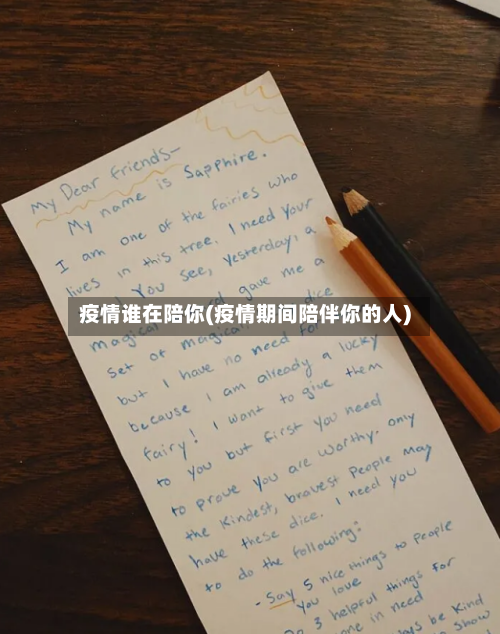 My Dear friends—
My name is Sapphire.
I am one of the fairies who
lives in this tree. I need your
You see, Yesterday, a
magical gave me a
疫情谁在陪你(疫情期间陪伴你的人)
set of magical dice
but I have no need for
because I am already a lucky
fairy! I want to give them
to you but first you need
to prove you are worthy. Only
the kindest, bravest people may
have these dice. I need you
to do the following:
- Say 5 nice things to people
you love
Do 3 helpful things for
in need
be kind
show